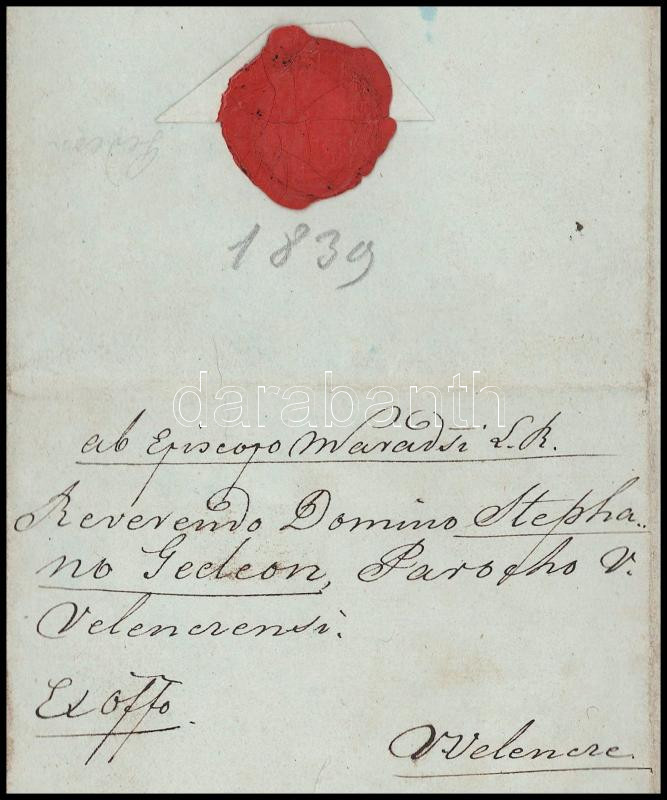 1839
darabanth
ab Episcopo Waradsi L.R.
Reverendo Domino Stepha„
no Gedeon, Parocho V.
Velenczensi.
Ex offo.
V.Velencze.